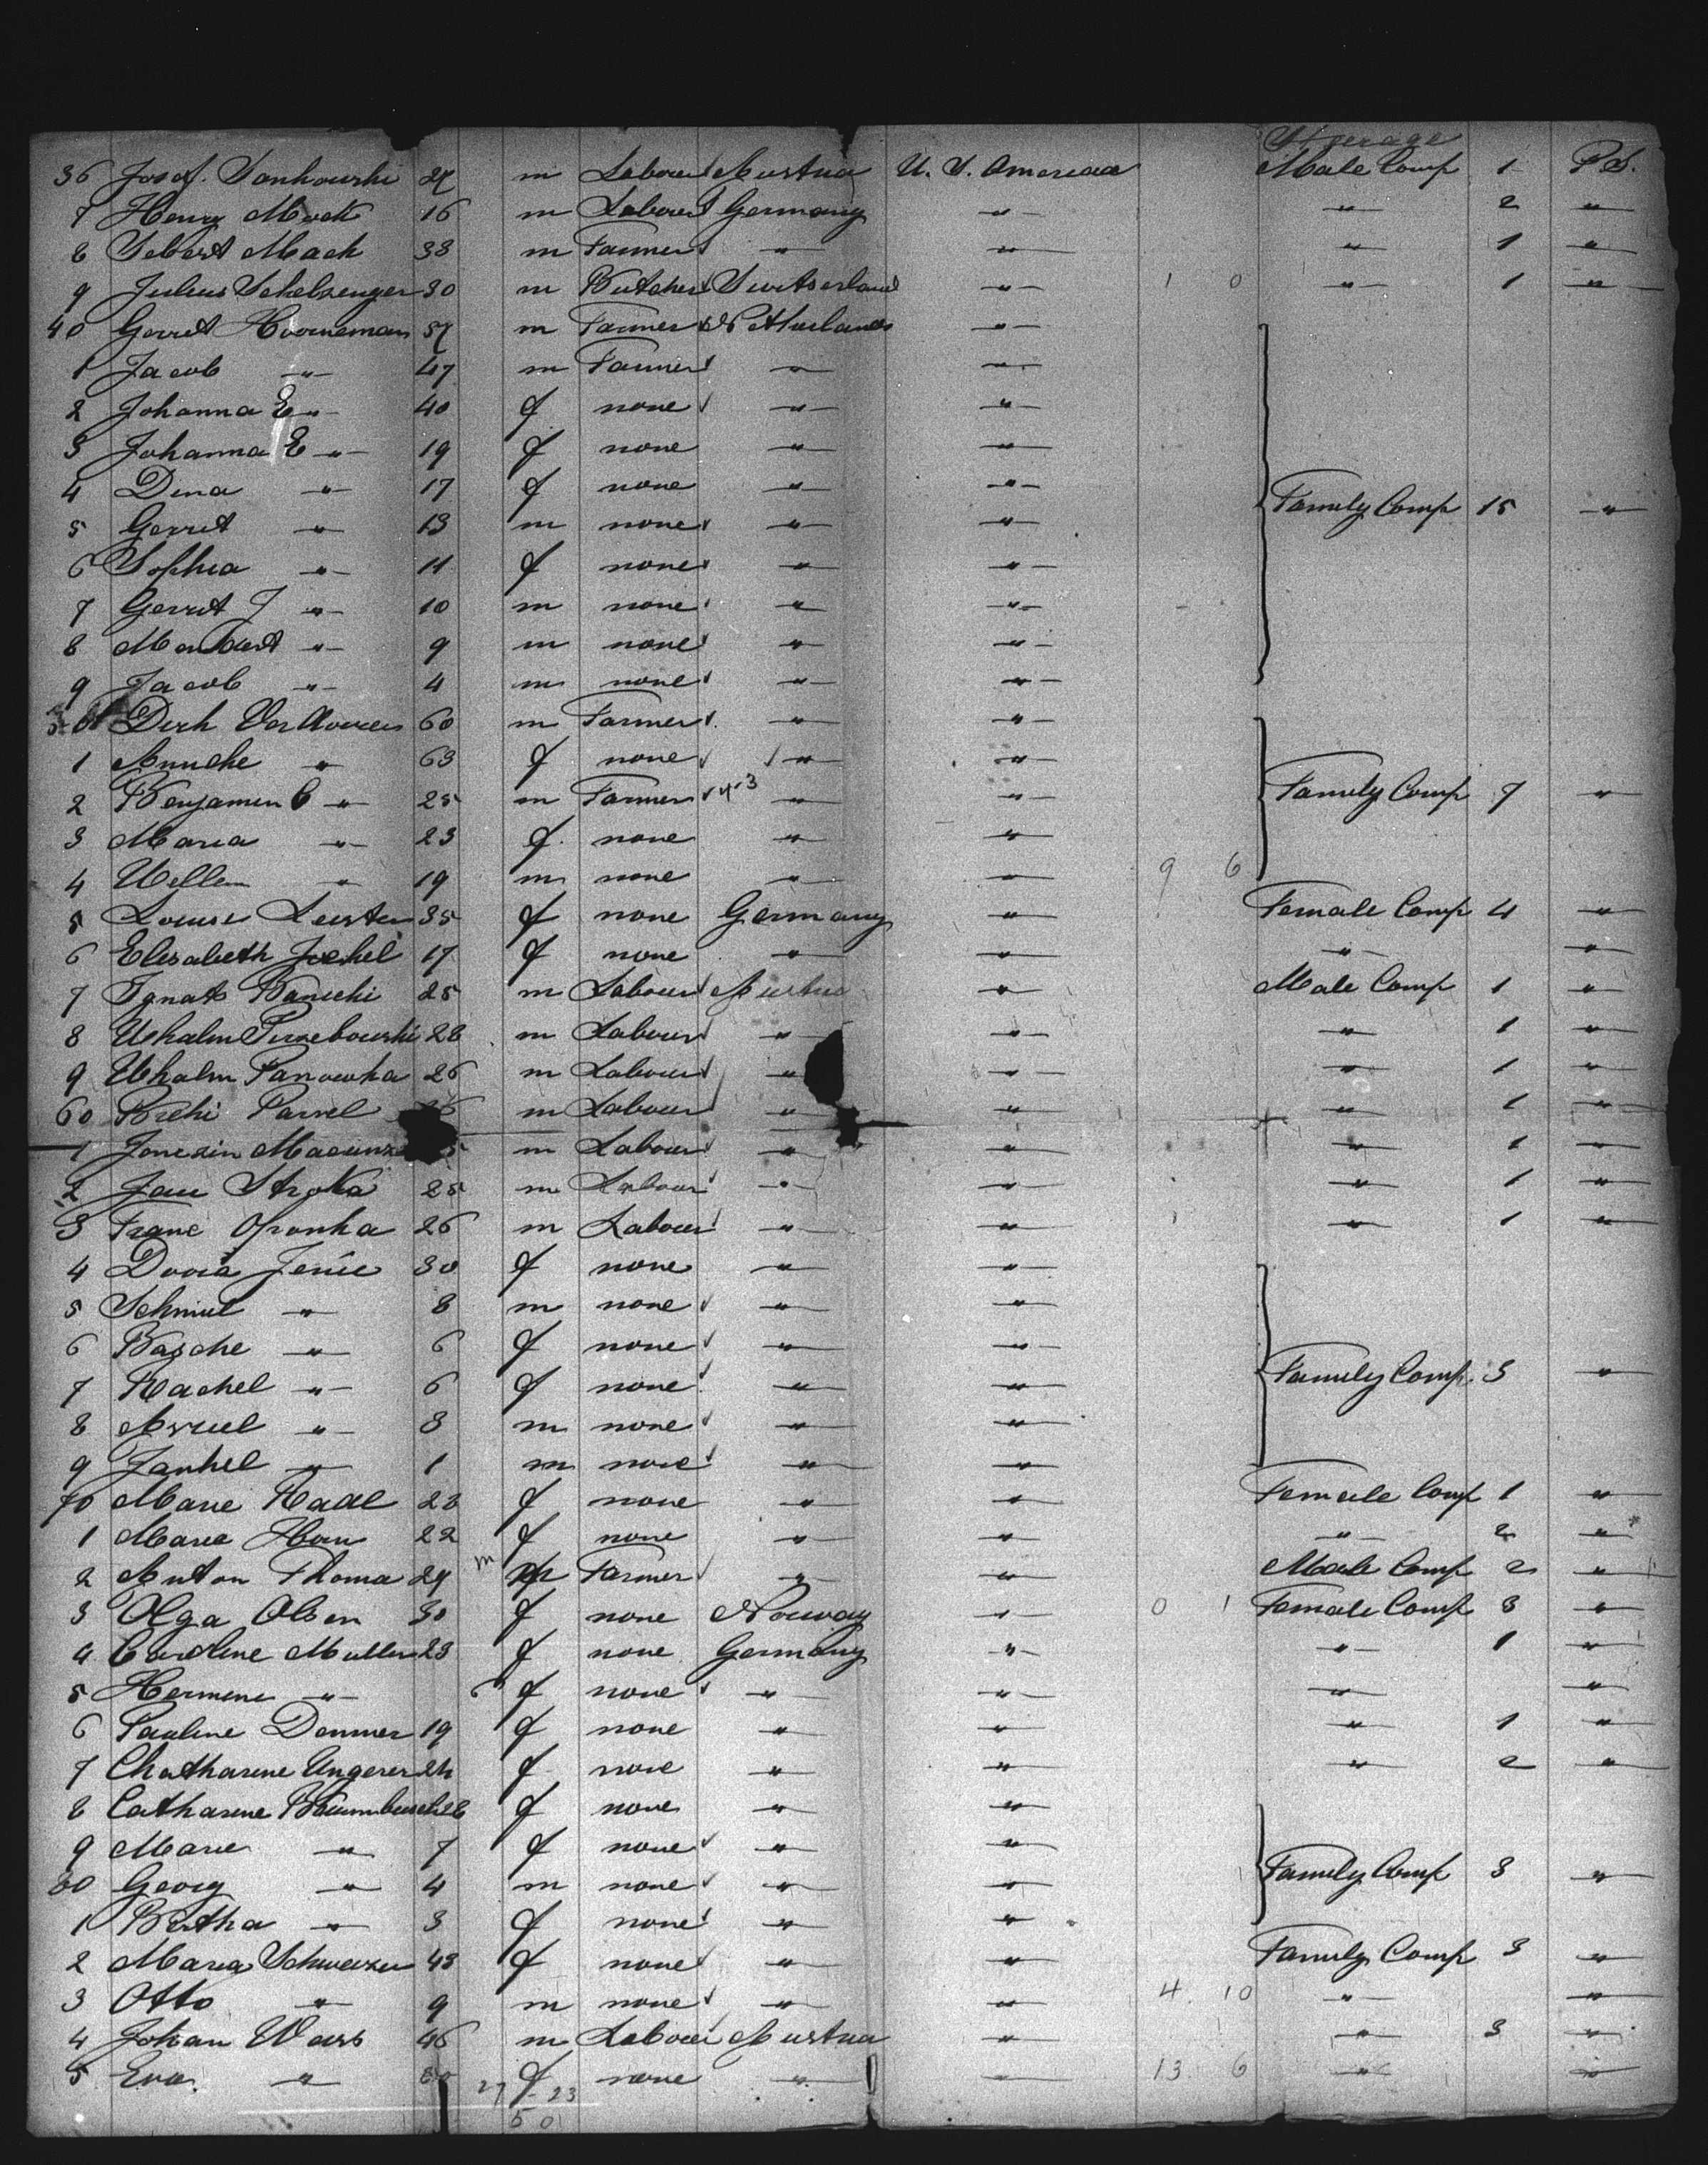 Steerage
36 Josef. Sankowski 27 m Labour Austria U. S. America Male Comp 1 P S.
7 Henry Mack 16 m Labour Germany " " 2 "
8 Sebert Mack 33 m Farmer " " " 1 "
9 Julius Schelzenger 30 m Butcher Switserland " 1 0 " 1 "
40 Gerret Hoorneman 57 m Farmer Netherlands "
1 Jacob " 47 m Farmer " "
2 Johanna E " 40 f none " "
3 Johanna E " 19 f none " "
4 Dina " 17 f none " " Family Comp 15 "
5 Gerret " 13 m none " "
6 Sophia " 11 f none " "
7 Gerret J " 10 m none " "
8 " 9 m none " "
9 Jacob " 4 m none " "
50 Dirk 60 m Farmer " "
1 " 63 f none " "
2 Benjamin C " 25 m Farmer " " Family Comp 7 "
3 Maria " 23 f none " "
4 Willem " 19 m none " " 9 6
5 Louise Leister 35 f none Germany " Female Comp 4 "
6 Elisabeth Jockel 17 f none " " " "
7 Ignatz Banicki 25 m Labour Austria " Male Comp 1 "
8 28 m Labour " " " 1 "
9 Panowka 26 m Labour " " " 1 "
60 Parvel m Labour " " " 1 "
1 m Labour " " " 1 "
2 Jan Stroka 25 m Labour " " " 1 "
3 Franc Opanka 26 m Labour " " " 1 "
4 30 f none " "
5 Schmul " 8 m none " "
6 Basche " 6 f none " "
7 Rachel " 6 f none " " Family Comp. 3 "
8 " 3 m none " "
9 Jankel " 1 m none " "
70 Marie Raal 23 f none " " Female Comp 1 "
1 Marie 22 f none " " " 2 "
2 Anton Thoma 29 m Farmer " " Male Comp 2 "
3 Olga Olsen 30 f none Norway " 0 1 Female Comp 3 "
4 Caroline Muller 23 f none Germany " " 1 "
5 Hermine " 6 f none " " " "
6 Pauline Dommer 19 f none " " " 1 "
7 Chatharine Ungerer 24 f none " " " 2 "
8 Catharine Baumbusch 28 f none " "
9 Marie " 7 f none " "
80 Georg " 4 m none " " Family Comp 3 "
1 Bertha " 3 f none " "
2 Maria Schweizer 43 f none " " Family Comp 3 "
3 Otto " 9 m none " " 4 10 " "
4 Johan Wass 46 m Labour Austria " " 3 "
5 Eva " f none " " 13 6 " "
27 - 23
50